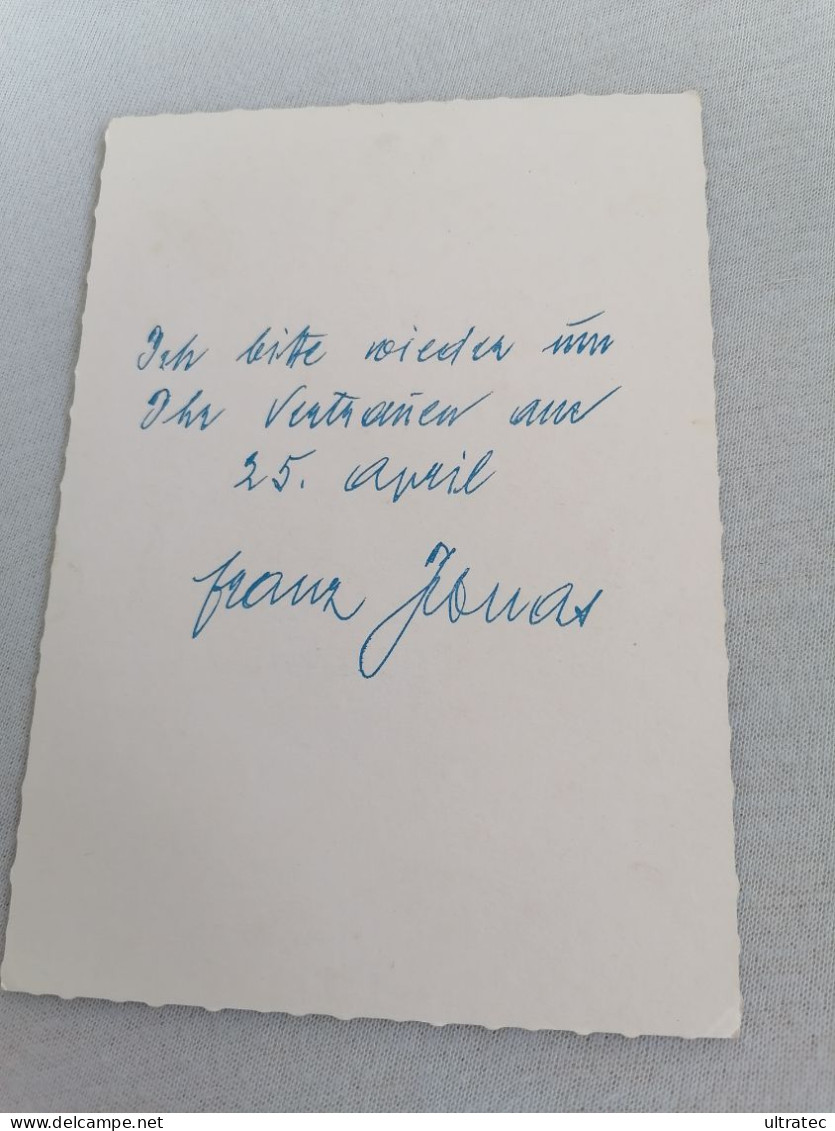 Ich bitte wieder um
Ihr Vertrauen am
25. April
Franz Jonas
delcampe.net
ultratec